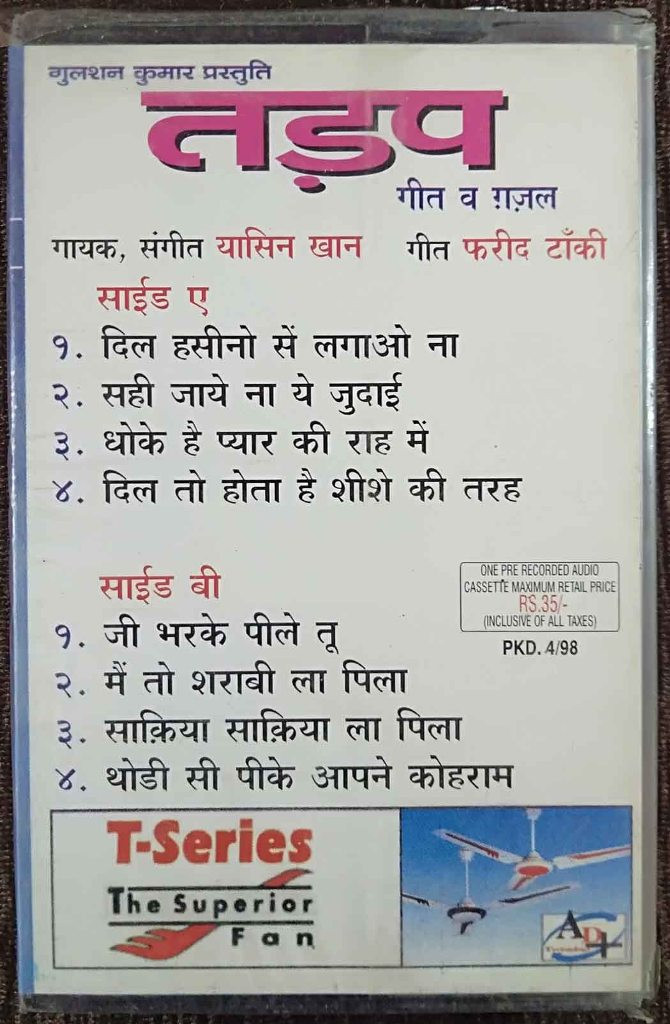 गुलशन कुमार प्रस्तुति
तड़प
गीत व ग़ज़ल
गायक, संगीत यासिन खान गीत फरीद टाँकी
साईड ए
१. दिल हसीनो सें लगाओ ना
२. सही जाये ना ये जुदाई
३. धोके है प्यार की राह में
४. दिल तो होता है शीशे की तरह
साईड बी
१. जी भरके पीले तू
२. मैं तो शराबी ला पिला
३. साक़िया साक़िया ला पिला
४. थोडी सी पीके आपने कोहराम
ONE PRE RECORDED AUDIO
CASSETTE MAXIMUM RETAIL PRICE
RS.35/-
(INCLUSIVE OF ALL TAXES)
PKD. 4/98
T-Series
The Superior
Fan
AD+